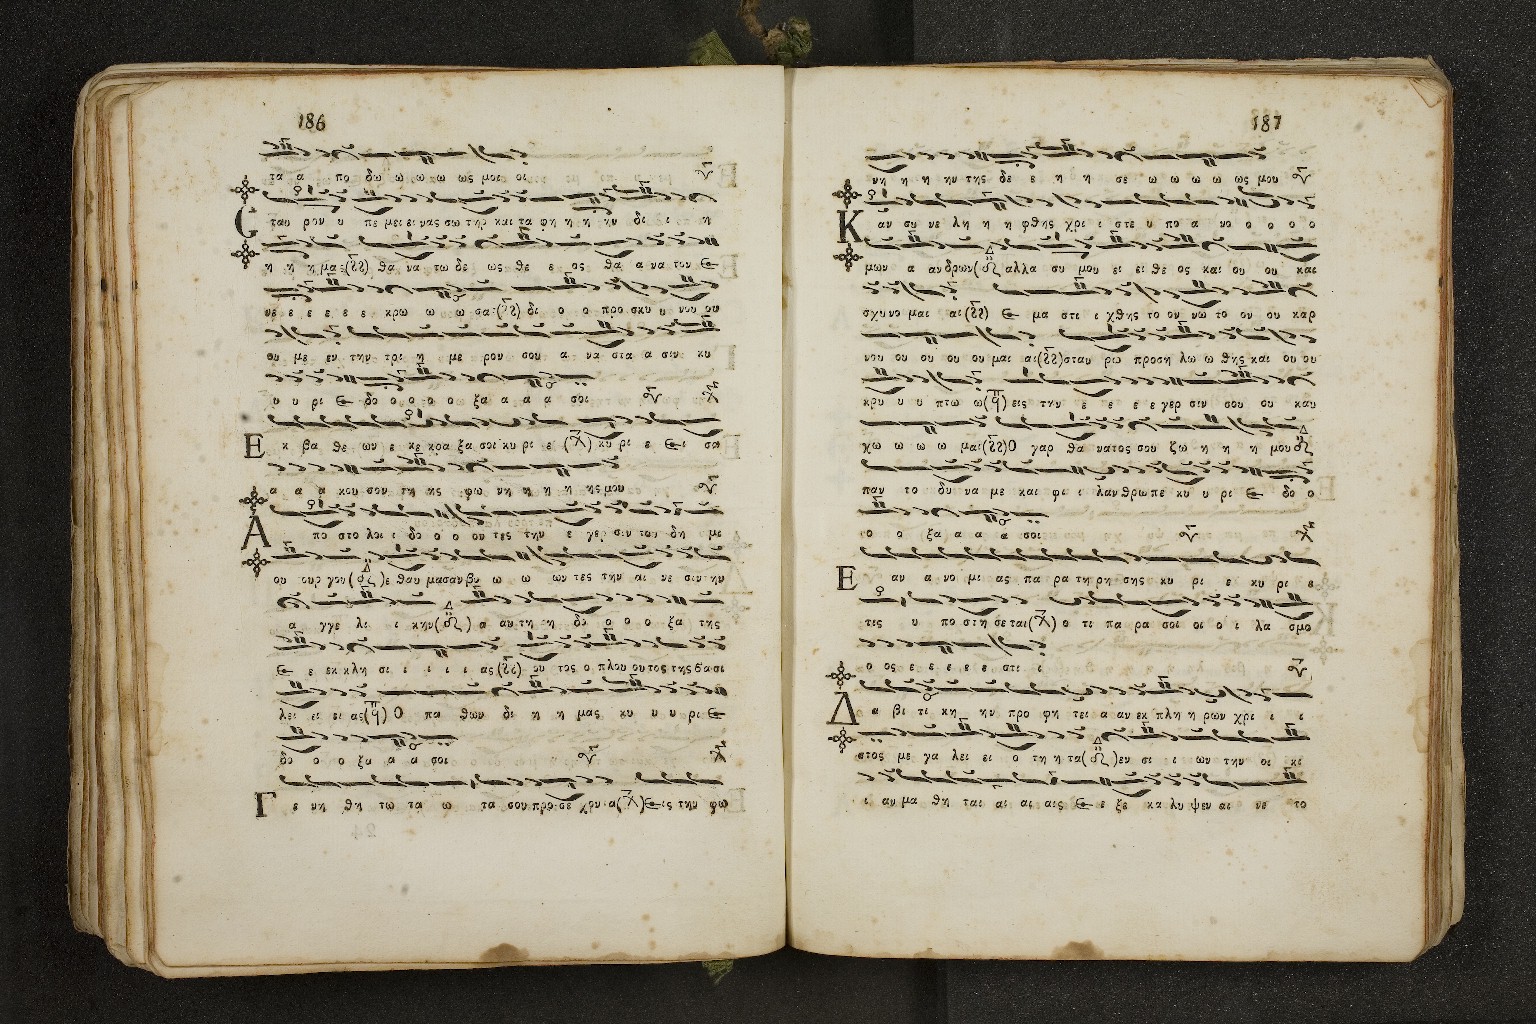 186
τα α πο δω ω ω ω ως μοι οι
ταυ ρον υ πε μει ει νας σω τηρ και τα φη η η ην δι ι η
η η η μας θα να τω δε ως θε ε ος θα α να τον
νε ε ε ε ε ε κρω ω ω σας δι ο ο προ σκυ υ νου ου
ου με εν την τρι η με ρον σου α να στα α σιν κυ
υ υ ρι ε δο ο ο ο ο ξα α α α σοι
Ε κ βα θε ων ε κε κρα ξα σοι κυ ρι ε κυ ρι ε ει σα
α α α κου σον τη ης φω νη η η η ης μου
Α πο στο λοι ι δο ο ο ον τες την ε γερ σιν του δη μι
ου ουρ γου ε θαυ μασαν βν ω ω ων τες την αι νε σιν ην
α γγε λι ι κην α αυ τη η δο ο ο ο ξα της
ε ε εκ κλη σι ι ι ι ι ας ου τος ο πλου ουτος της βα σι
λει ει ει ας Ο πα θων δι η η μας κυ υ υ ρι ε
δο ο ο ξα α α σοι
Γ ε νη θη τω τα ω τα σου προ σε χον τα εις την φω
187
νη η η ην της δε ε η η σε ω ω ω ω ως μου
Κ αν συ νε λη η η φθης χρι ι στε υ πο α νο ο ο ο ο
μων α αν δρων αλλα συ μου ει ει θε ος και ου ου και
σχυνο μαι αι ε μα στι ι χθης το ον νω το ον ου καρ
νου ου ου ου ου μαι αι σταυ ρω προση λω ω θης και ου ου
κρυ υ υ πτω ω εις την ε ε ε ε γερ σιν σου ου καυ
χω ω ω ω μαι Ο γαρ θα νατος σου ζω η η η μου
παν το δυ να με και φι ι λαν θρωπε κυ υ ρι ε δο ο
ο ο ξα α α α σοι
Ε αν α νο μι ας πα ρα τη ρη σης κυ ρι ε κυ ρι ε
τις υ πο στη σεται ο τι πα ρα σοι οι ο ι λα σμο
ο ος ε ε ε ε ε στι ι
Δ α βι τι κη ην προ φη τει α αν εκ πλη η ρων χρι ι ι
στος με γα λει ει ο τη η τα εν σι ι ων την οι κι
ι αν μα θη ται αι αι αις ε ε ξε κα λυ ψεν αι νε το